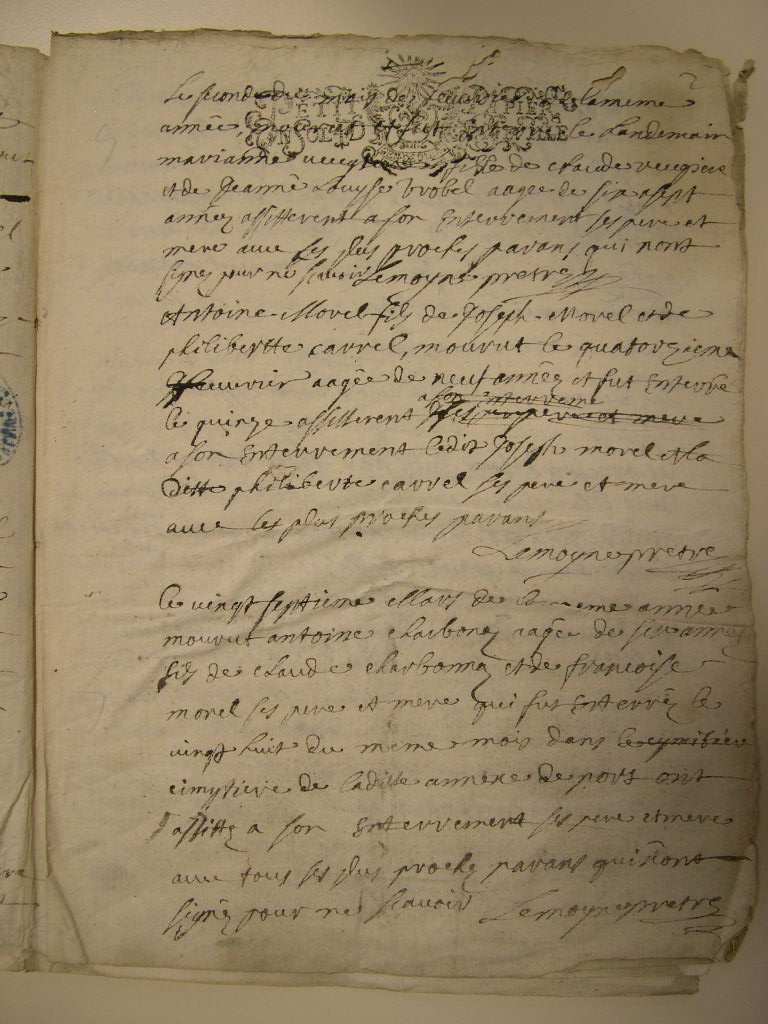 Le second du mois de feuvrier de la meme
année, mourut et fut le Landemain
marianne fille de claude
et de Jeanne Louysse vrobel aagee de six a sept
années assisterent a son Enterrement ses pere et
mere avec Les plus proches parans qui nont
signes pour ne scavoir Lemoyne pretre
Antoine Morel fils de Joseph Morel et de
philibertte carrel, mourut le quatorzieme
feuvrier aagée de neuf années et fut Enterré
le quinze assisterent a son Enterreme
a son Enterrement ledit Joseph morel et la
ditte philiberte carrel ses pere et mere
avec les plus proches parans
Lemoyne pretre
le vingt septieme Mars de la meme année
mourut antoine charbonez aagée de six années
fils de claude charbonnez et de francoise
morel ses pere et mere qui fut Enterréz le
vingt huit du meme mois dans le cymitiere
cimytiere de ladille annexe de port ont
assistez a son Enterrement ses pere et mere
avec tous ses plus proches parans qui nont
signéz pour ne scavoir Lemoyne pretre